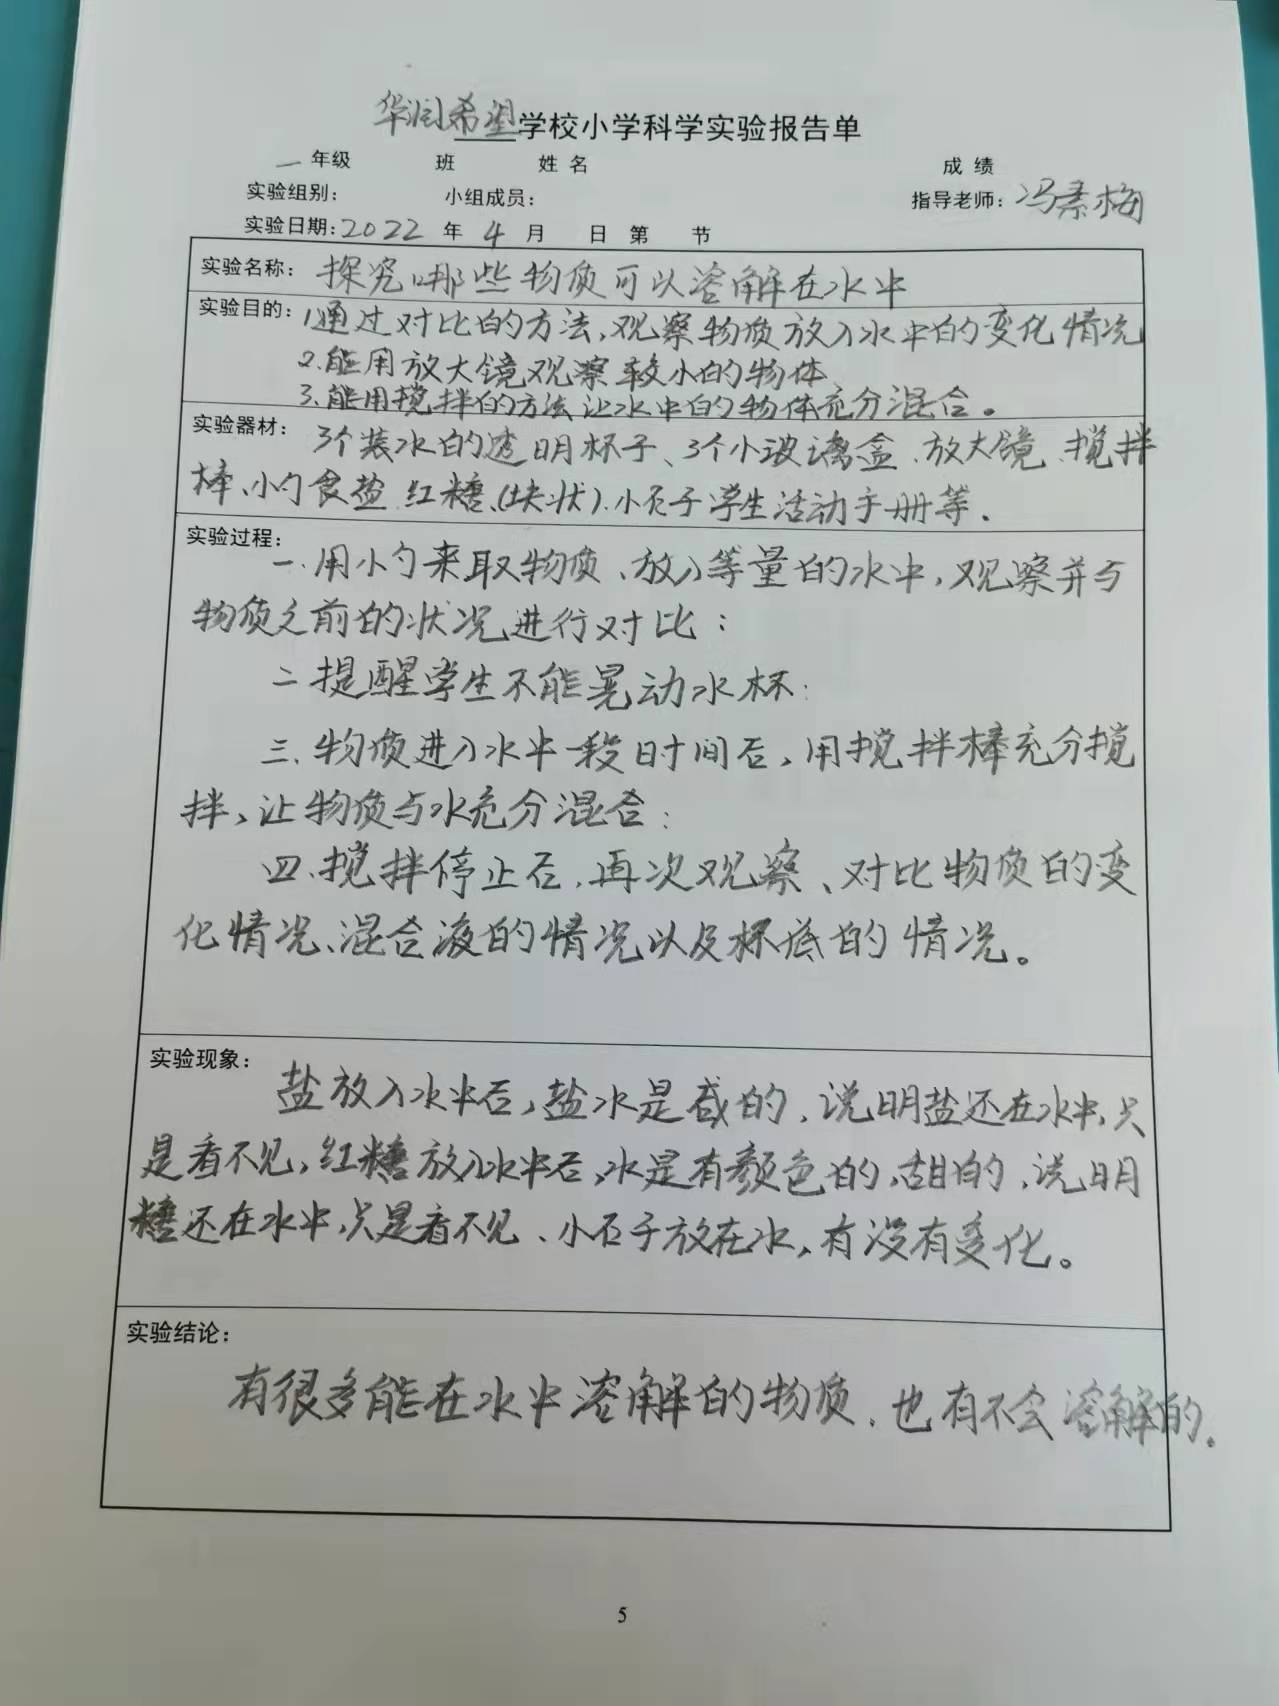 华润希望学校小学科学实验报告单
一年级 班 姓名 成绩
实验组别： 小组成员： 指导老师：冯素梅
实验日期：2022年4月 日 第 节
实验名称：探究哪些物质可以溶解在水中
实验目的：1通过对比的方法，观察物质放入水中的变化情况
2.能用放大镜观察较小的物体
3.能用搅拌的方法让水中的物体充分混合。
实验器材：3个装水的透明杯子、3个小玻璃盒、放大镜、搅拌
棒、小勺食盐、红糖（块状）、小石子学生活动手册等、
实验过程：
一、用小勺来取物质、放入等量的水中，观察并与
物质之前的状况进行对比：
二提醒学生不能晃动水杯：
三、物质进入水中一段时间后，用搅拌棒充分搅
拌，让物质与水充分混合：
四、搅拌停止后，再次观察、对比物质的变
化情况、混合液的情况以及杯底的情况。
实验现象：
盐放入水中后，盐水是咸的，说明盐还在水中，只
是看不见，红糖放入水中后，水是有颜色的，甜的，说明
糖还在水中，只是看不见、小石子放在水，有没有变化。
实验结论：
有很多能在水中溶解的物质，也有不会溶解的。
5